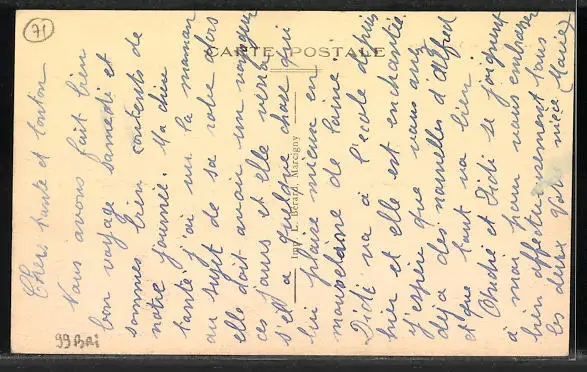 71
CARTE POSTALE
Imp. L. Bérard, Marcigny
Chers tante et tonton
Nous avons fait bien
bon voyage samedi et
sommes bien contents de
notre journée. Ma chère
tante j'ai vu la maman
au sujet de sa robe alors
elle doit avoir un voyageur
ces jours et elle verra
s'il a quelque chose qui
lui plaise mieux en
mousseline de laine.
Didi va à l'école depuis
hier et elle est enchantée.
J'espère que vous avez
déjà des nouvelles d'Alfred
et que tout va bien.
et Didi se joignent
à moi pour vous embrasser
bien affectueusement tous
les deux Votre nièce Marie
99 BRI